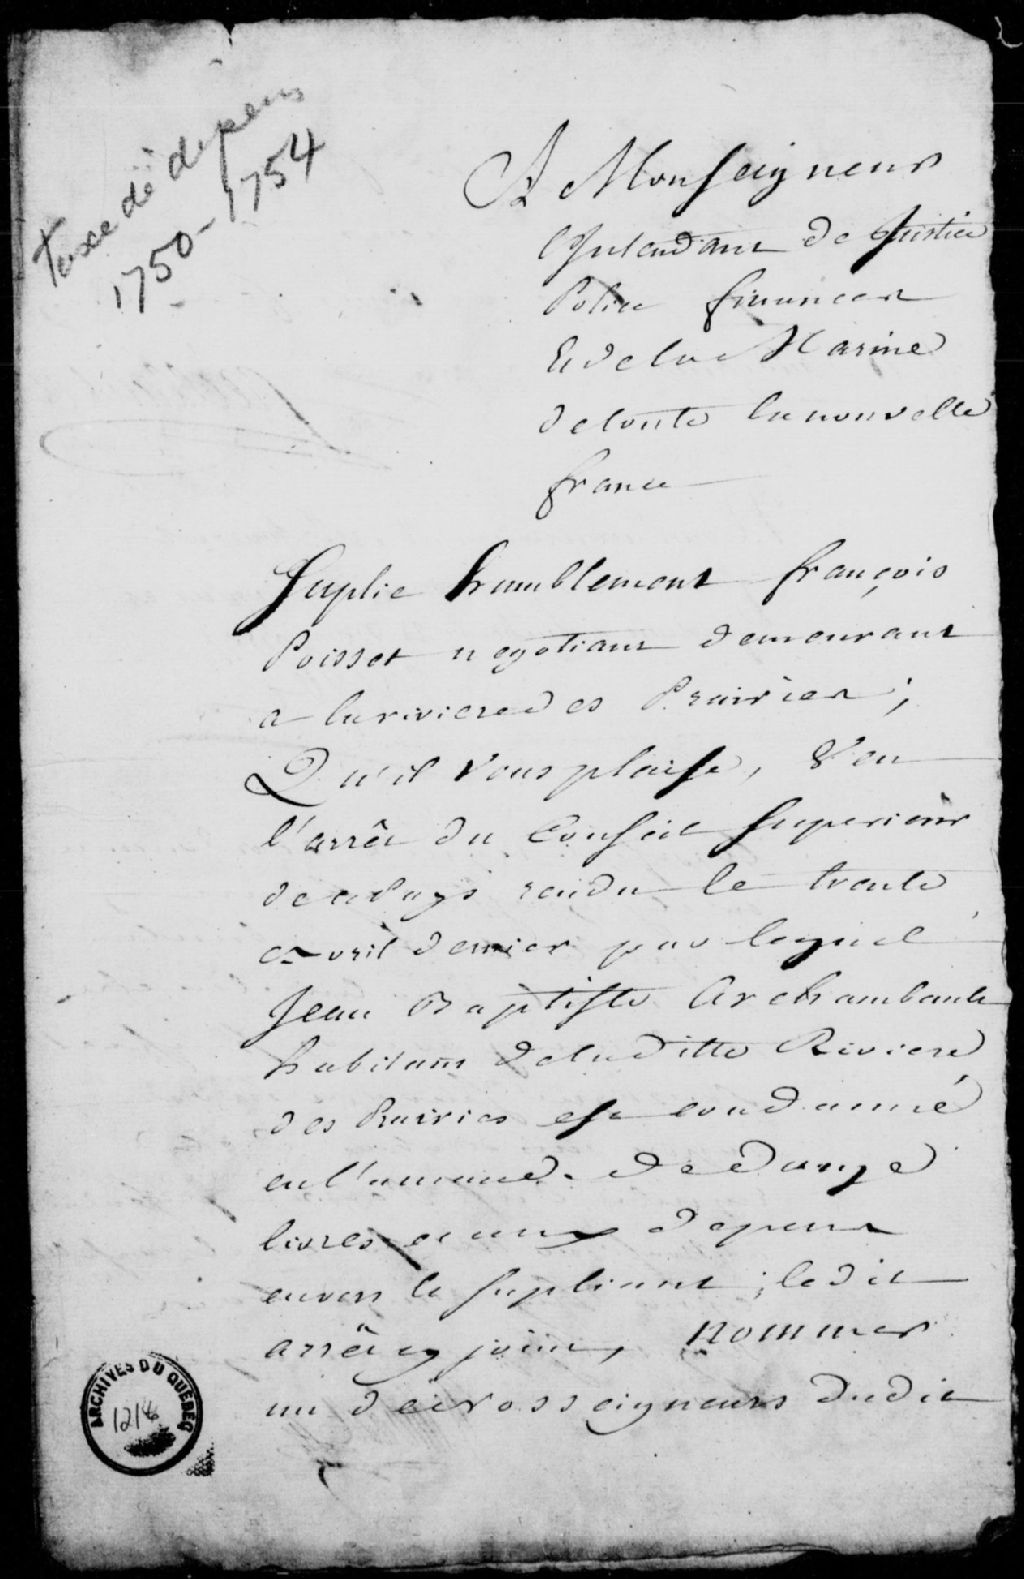 Taxe de dépens
1750-1754
A Monseigneur
l'Intendant de Justice
Police finances
Et de la Marine
de toute la nouvelle
france
Suplie humblement françois
Poisset negotiant demeurant
a la riviere des Prairies ;
Qu'il vous plaise, Veu
l'arrêt du Conseil Superieur
de ce Pays rendu le trente
avril dernier par lequel
Jean Baptiste Archambault
habitant de la ditte Riviere
des Prairies est condamné
en l'amende de
livres et aux depens
envers le supliant ; le dit
arrêt cy joint, nommer
un de vos seigneurs dudit
ARCHIVES DU QUÉBEC
1214